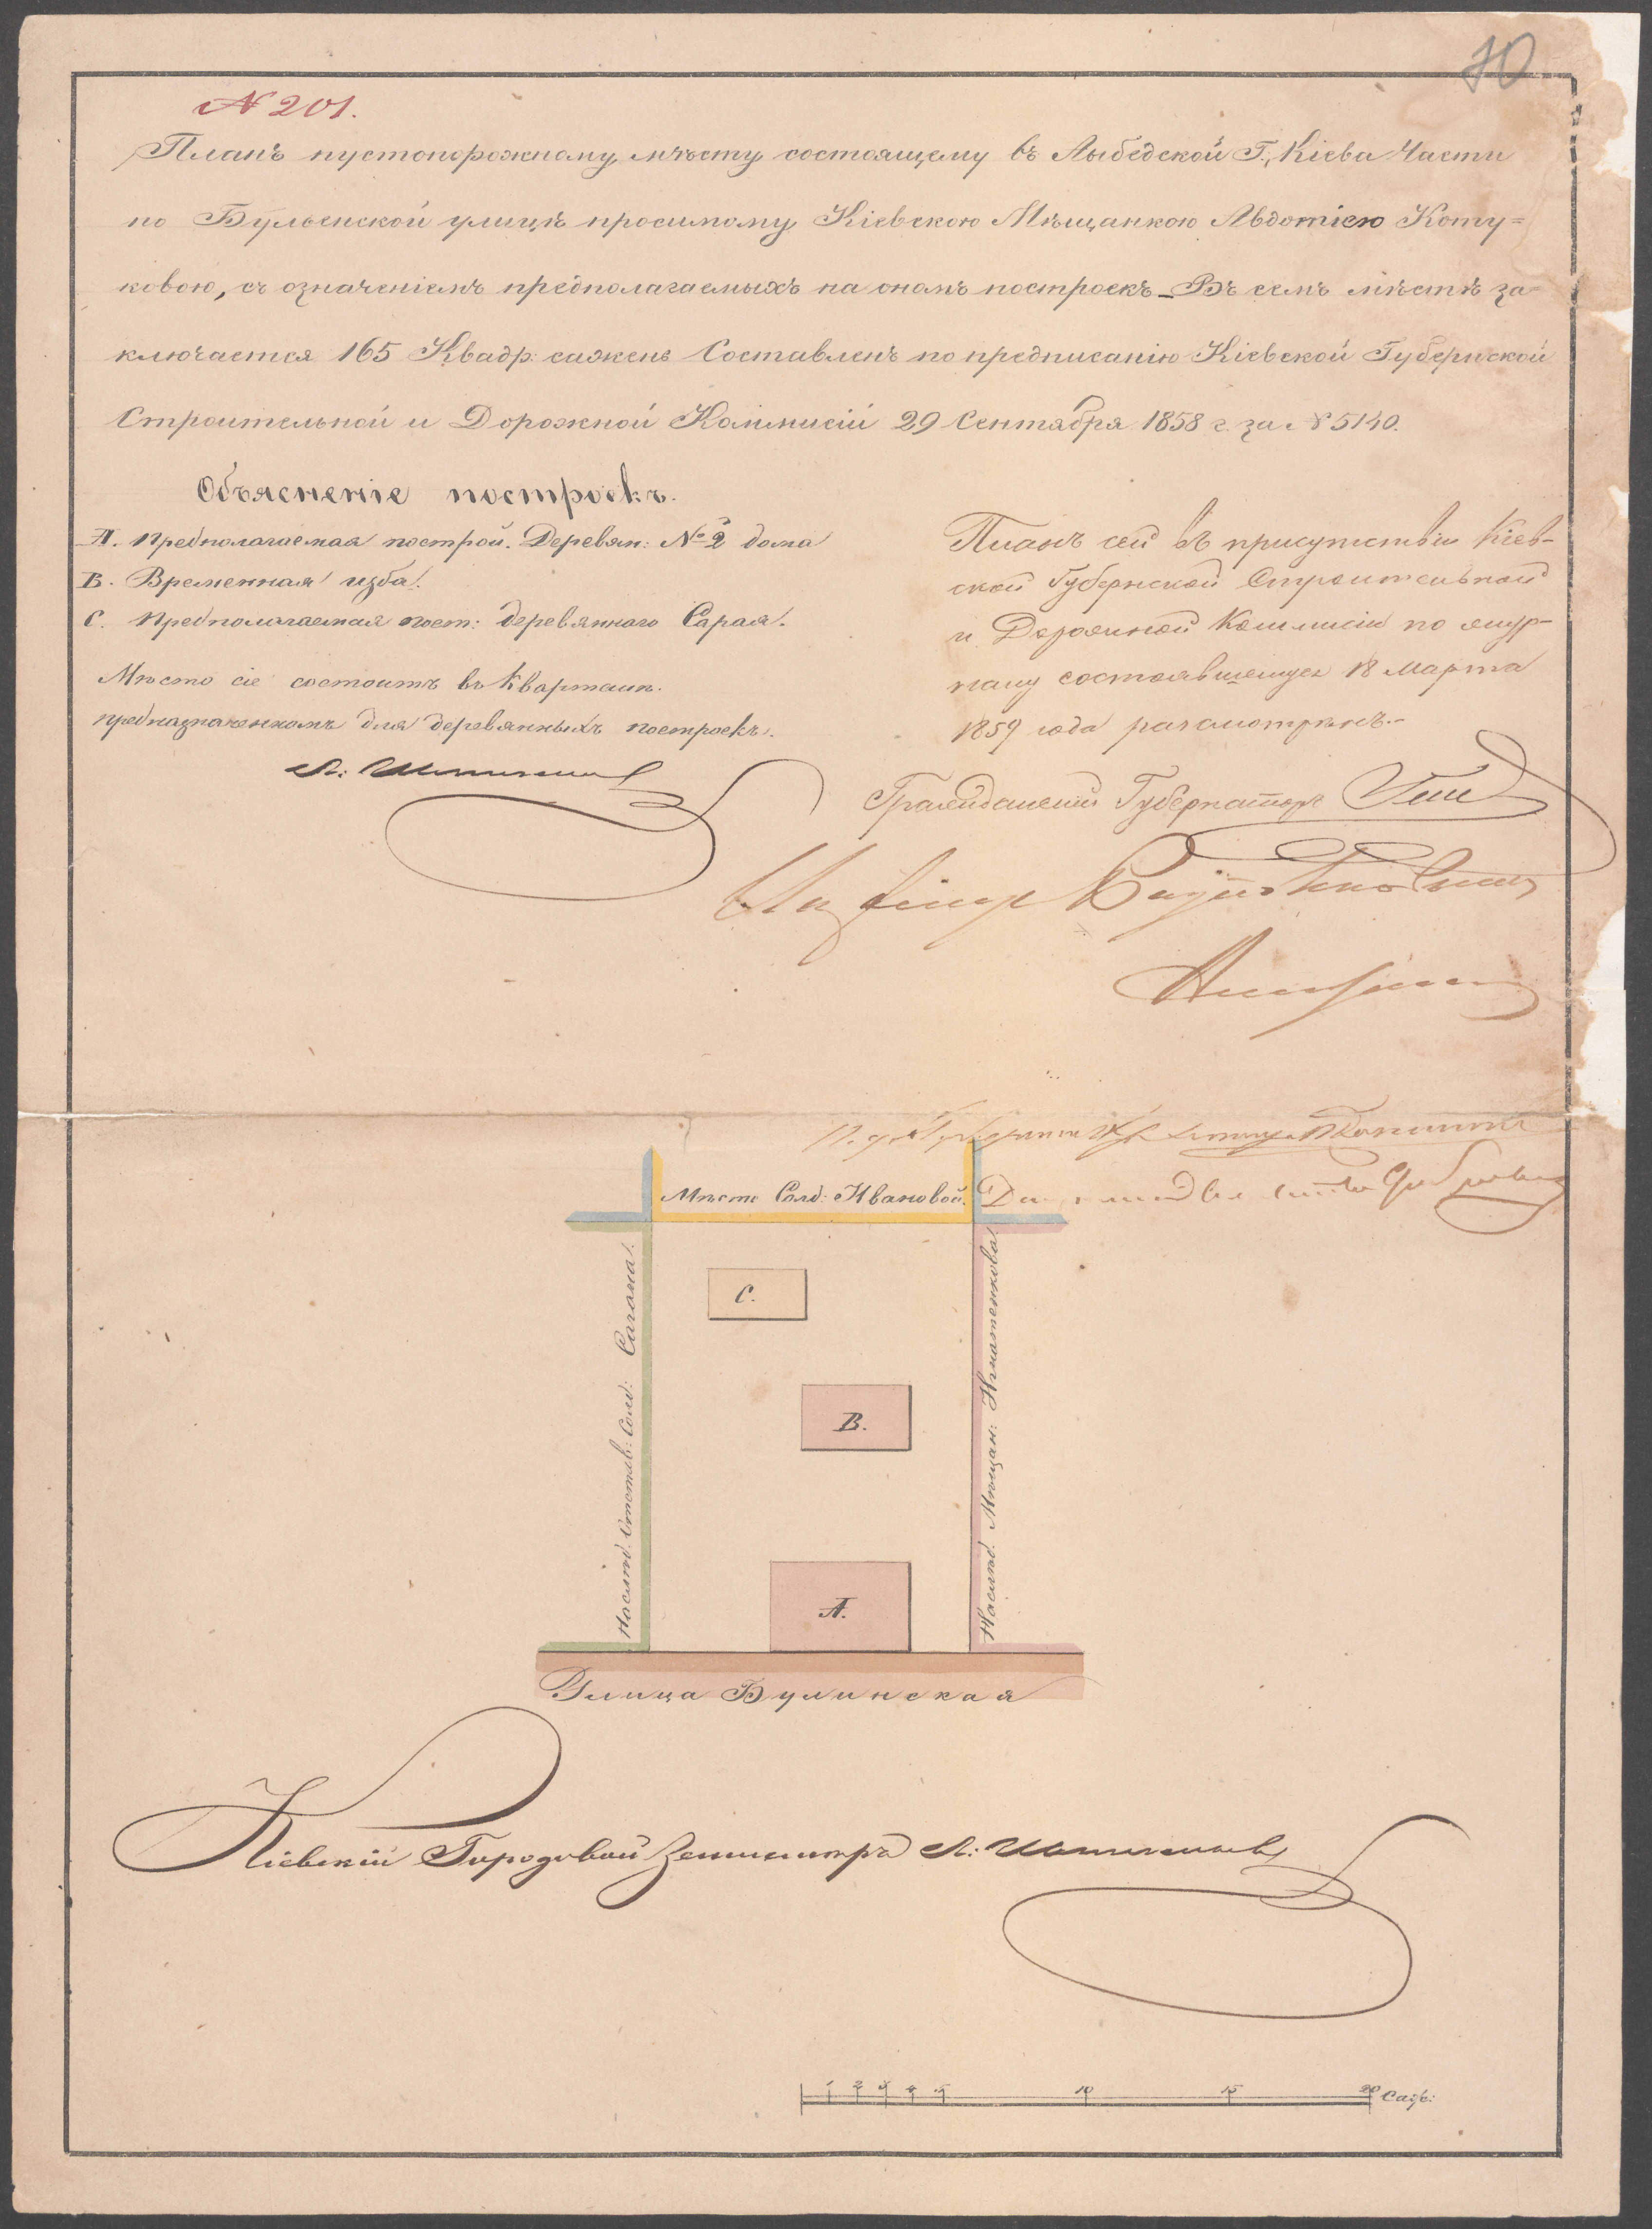 70
№ 201.
Планъ пустопорожному мѣсту состоящему въ Лыбедской Г. Кіева Части
по Бульенской улицѣ просимому Кіевскою Мѣщанкою Авдотіею Коту=
ковою, съ означеніемъ предполагаемыхъ на ономъ построекъ. Въ семъ мѣстѣ за=
ключается 165 Квадр: сажень Составленъ по предписанію Кіевской Губернской
Строительной и Дорожной Коммисіи 29 Сентября 1858 г. за № 5140.
Объясненіе построекъ.
А. Предполагаемая построй. Деревян: № 2 дома
В. Временная изба.
С. Предполагаемая пост: деревяннаго Сарая.
Мѣсто сіе состоитъ въ Кварталѣ
предназначенномъ для деревянныхъ построекъ.
Планъ сей въ присутствіи Кіев-
ской Губернской Строительной
и Дорожной Коммисіи по жур-
налу состоявшемуся 18 Марта
1859 года разсмотрѣнъ.
Гражданскій Губернаторъ
Мѣсто Солд: Ивановой.
С.
В.
А.
Наслѣд. Отстав: Солд:
Наслѣд. Мѣщан: Игнатенкова
Улица Булинская
Кіевскій Городовой Землемѣръ
1 2 3 4 5 10 15 20 Саж: